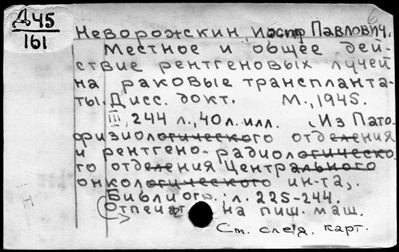 Д45
161
Неворожкин Иосиф Павлович.
Местное и общее дей-
ствие рентгеновых лучей
на раковые трансплантa-
ты. Дисс. докт. М., 1945.
III, 244 л., 40 л. илл. (Из Пато-
физиологического отделения
и рентгено-радиологическо-
го отделения Центрального
онкологического ин-та).
Библиогр.: л. 225-244.
Отпечат. на пиш. маш.
См. след. карт.